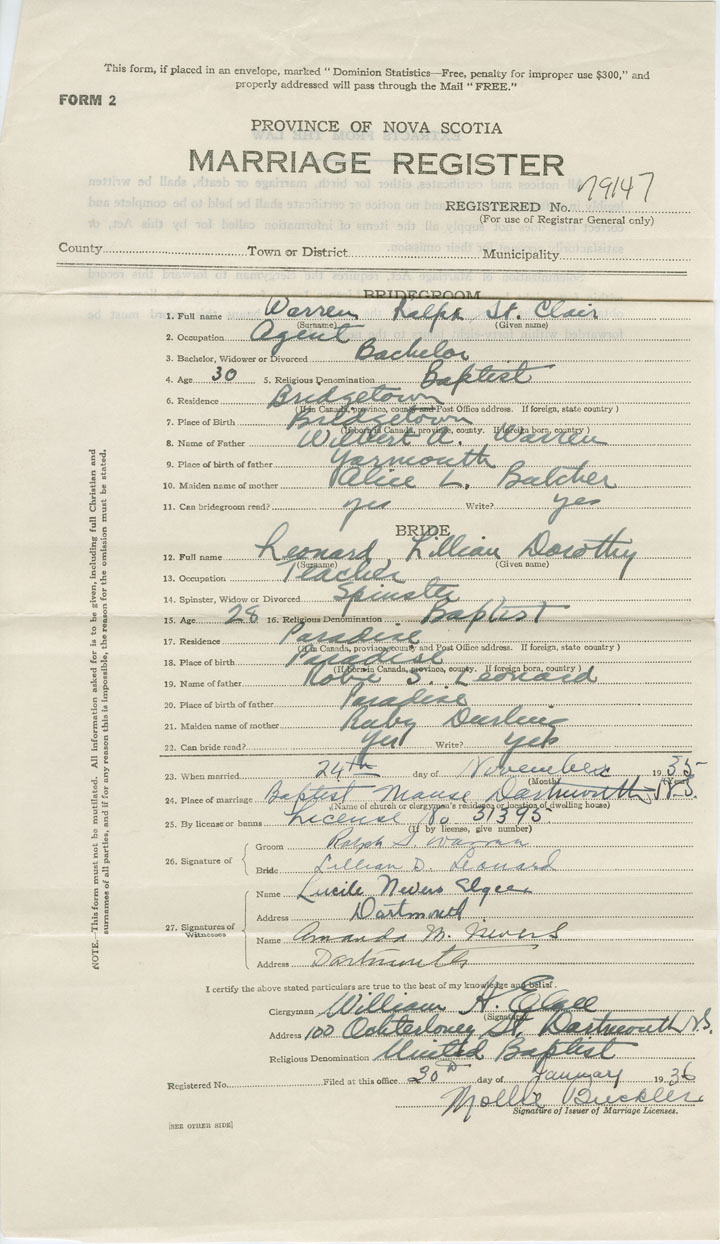 This form, if placed in an envelope, marked "Dominion Statistics—Free, penalty for improper use $300," and
properly addressed will pass through the Mail "FREE."
FORM 2
PROVINCE OF NOVA SCOTIA
MARRIAGE REGISTER
REGISTERED No. 79147
(For use of Registrar General only)
County Town or District Municipality
BRIDEGROOM
1. Full name Warren Ralph St. Clair
(Surname) (Given name)
2. Occupation Agent
3. Bachelor, Widower or Divorced Bachelor
4. Age 30 5. Religious Denomination Baptist
6. Residence Bridgetown
(If in Canada, province, county and Post Office address. If foreign, state country)
7. Place of Birth Bridgetown
(If born in Canada, province, county. If foreign born, country)
8. Name of Father Wilbert A. Warren
9. Place of birth of father Yarmouth
10. Maiden name of mother Alice L. Butcher
11. Can bridegroom read? yes Write? yes
BRIDE
12. Full name Leonard, Lillian Dorothy
(Surname) (Given name)
13. Occupation Teacher
14. Spinster, Widow or Divorced Spinster
15. Age 28 16. Religious Denomination Baptist
17. Residence Paradise
(If in Canada, province, county and Post Office address. If foreign, state country)
18. Place of birth Paradise
(If born in Canada, province, county. If foreign born, country)
19. Name of father Robie S. Leonard
20. Place of birth of father Paradise
21. Maiden name of mother Ruby Durling
22. Can bride read? Yes Write? yes
23. When married 24th day of November 1935
(Month) (Year)
24. Place of marriage Baptist Manse Dartmouth, N.S.
(Name of church or clergyman's residence or location of dwelling house)
25. By license or banns License No 51395
(If by license, give number)
26. Signature of
Groom Ralph S. Warren
Bride Lillian D. Leonard
27. Signatures of Witnesses
Name Lucile Nevers Elgee
Address Dartmouth
Name Amanda M. Nevers
Address Dartmouth
I certify the above stated particulars are true to the best of my knowledge and belief.
Clergyman William H. Elgee
(Signature)
Address 100 Ochterloney St. Dartmouth N.S.
Religious Denomination United Baptist
Registered No. Filed at this office 30th day of January 1936
Mollie
Signature of Issuer of Marriage Licenses.
[SEE OTHER SIDE]
NOTE.—This form must not be mutilated. All information asked for is to be given, including full Christian and
surnames of all parties, and if for any reason this is impossible, the reason for the omission must be stated.